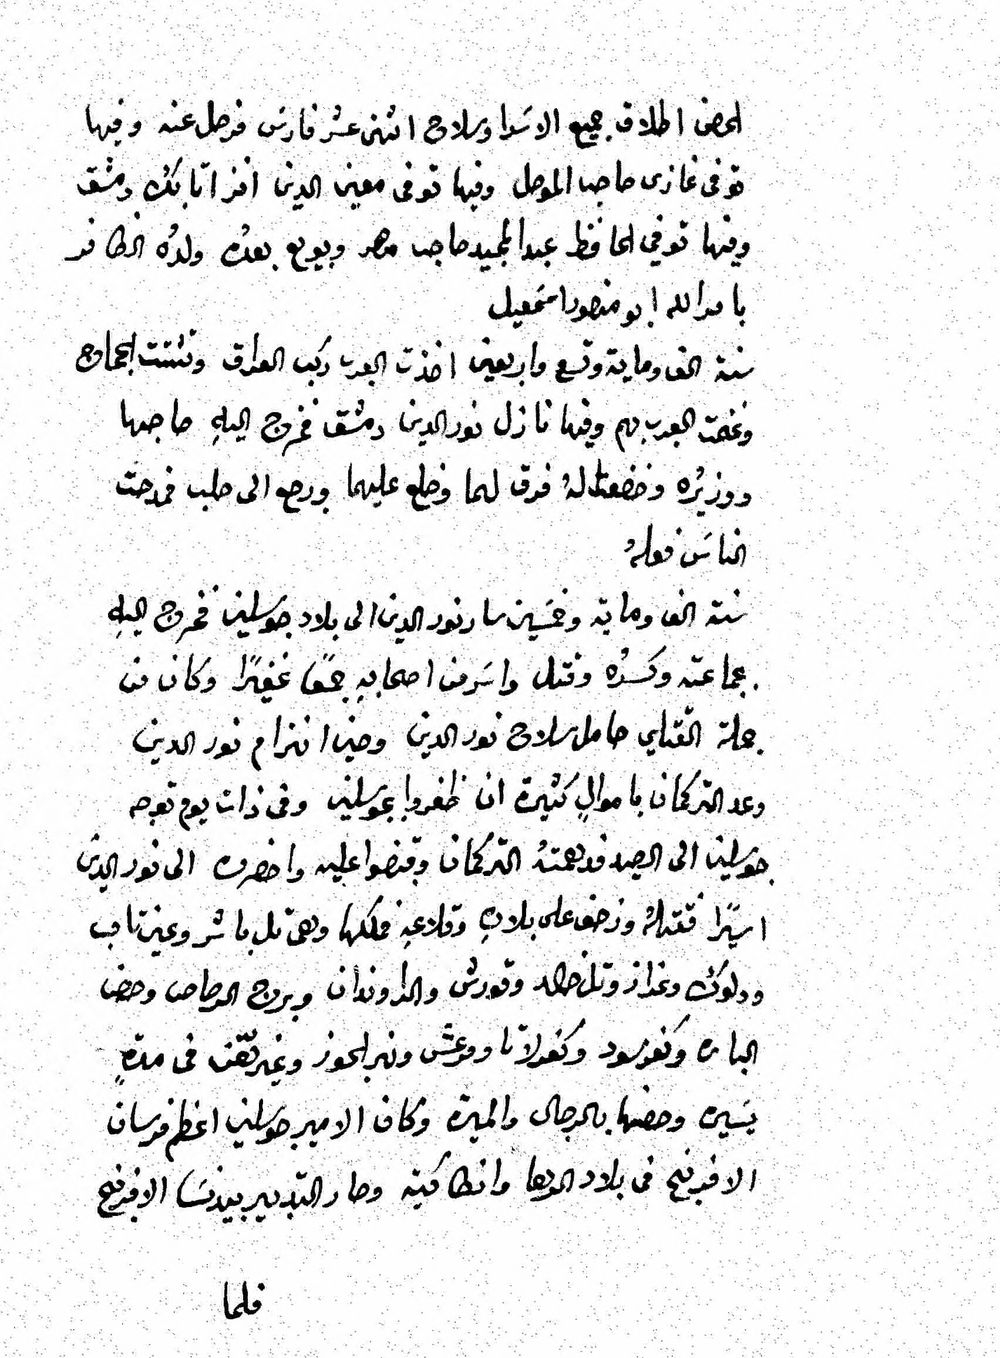 الحصن اطلاق جميع الاسرا وسلاح اثنى عشر فارس فرحل عنه وفيها
توفى غازى صاحب الموصل وفيها توفى معين الدين انز اتابك دمشق
وفيها توفي الحافظ عبد المجيد صاحب مصر وبويع بعده ولده الظافر
بامر الله ابو منصور اسمعيل
سنة الف وماية وتسع واربعين اخذت العرب ركب العراق وتشتت الحجاج
وغصت العرب بهم وفيها نازل نور الدين دمشق فخرج اليهِ صاحبها
ووزيره وخضعتا لهُ فرق لهما وخلع عليهما ورجع الى حلب فمدحت
الناس فعلهُ
سنة الف وماية وخمسين سار نور الدين الى بلاد جوسلين فخرج اليهِ
بجماعته وكسره وقتل واسر من اصحابهِ جمعًا غفيرًا وكان من
جملة القتلي حامل سلاح نور الدين وحين انهزام نور الدين
وعد التركمان باموالٍ كثيرة ان ظفروا بجوسلين وفى ذات يوم توجه
جوسلين الى الصيد فدهمتهُ التركمان وقبضوا عليه واحضروه الى نور الدين
اسيرًا فقتلهُ وزحف على بلادهِ وقلاعهِ فملكها وهى تل باشر وعين تاب
ودلوك وعزاز وتل خالد وقورش والراوندان وبرج الرصاص وحصن
الباره وكفرسود وكفرلاتا ومرعش ونهر الجوز وغير ذلك فى مدةٍ
يسيره وحصنها بالرجال والميرة وكان الامير جوسلين اعظم فرسان
الافرنج فى بلاد الرها وانطاكية وصار التدبير بيد نسا الافرنج
فلما